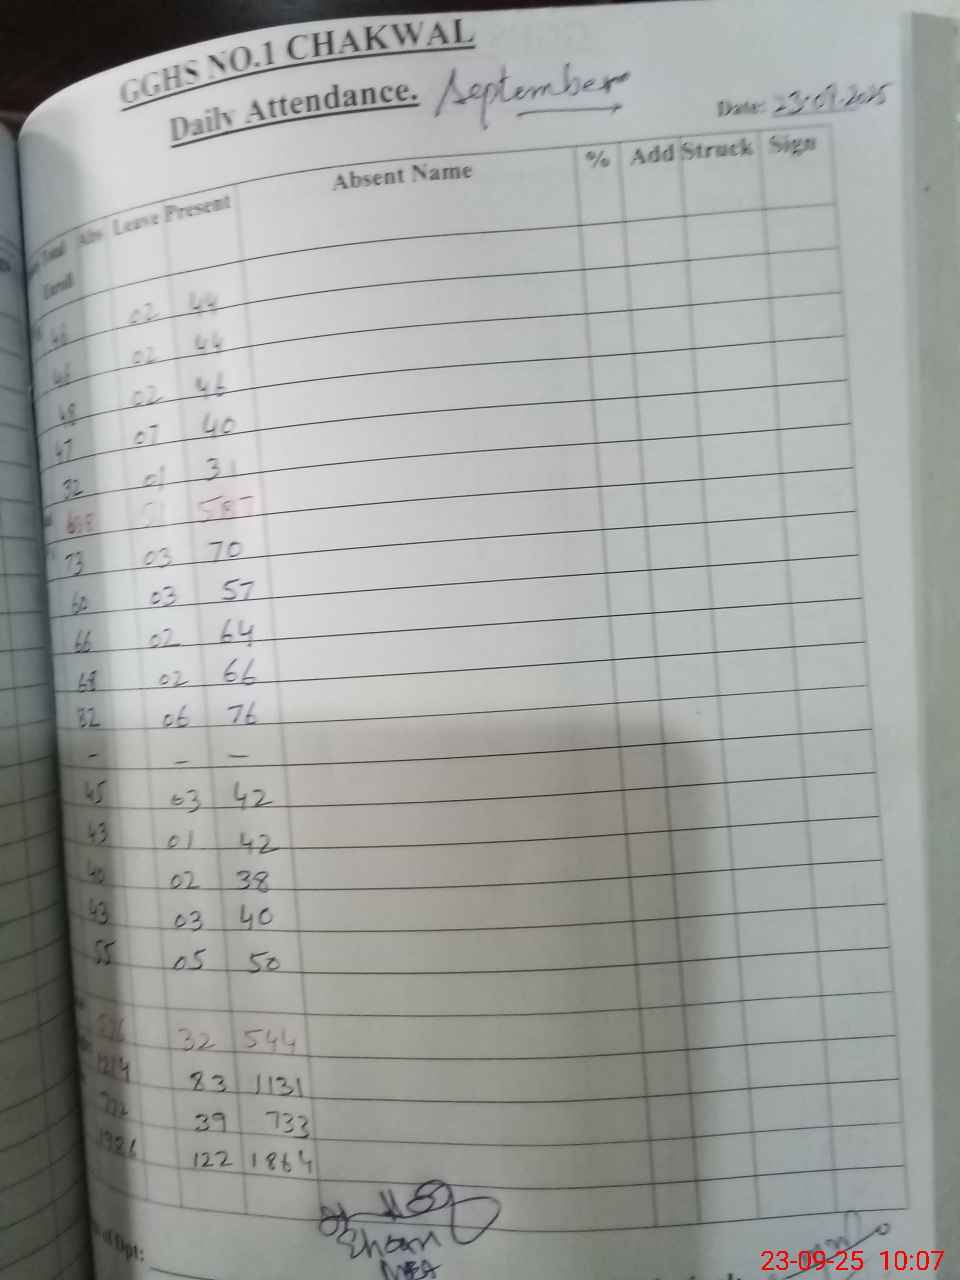 GGHS NO.1 CHAKWAL
Daily Attendance. September
Date: 23-09-2025
Total Enroll Abs Leave Present Absent Name % Add Struck Sign
46 02 44
46 02 44
48 02 46
47 07 40
32 01 31
638 51 587
73 03 70
60 03 57
66 02 64
68 02 66
82 06 76
- - -
45 03 42
43 01 42
40 02 38
43 03 40
55 05 50
576 32 544
1214 83 1131
772 39 733
1986 122 1864
Ehsan
MEA
Dpt:
23-09-25 10:07